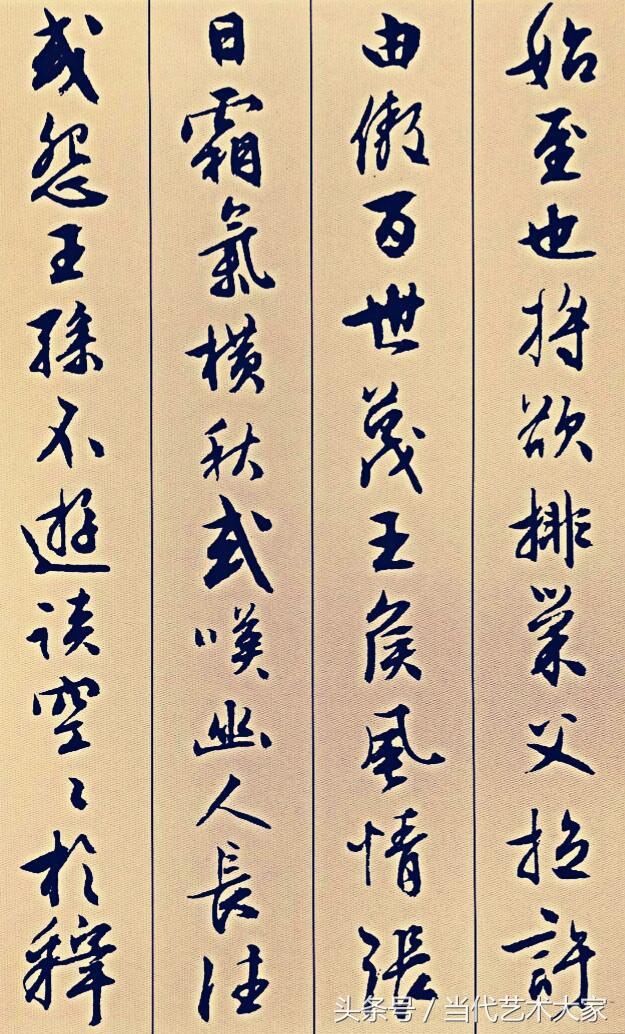 始至也將欲排巢父拉許
由傲百世蔑王侯風情張
日霜氣橫秋或嘆幽人長往
或怨王孫不遊談空〻於釋
头条号 / 当代艺术大家